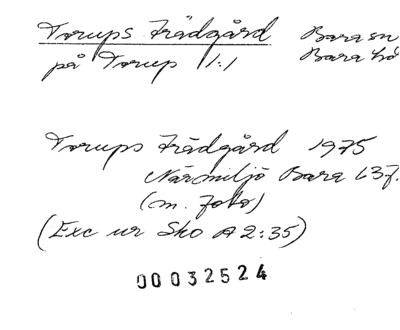 Torups trädgård Bara sn
på Torup 1:1 Bara hd
Torups trädgård 1975
Närmiljö Bara 637.
(m. foto)
(Exc ur Sko A 2:35)
00032524